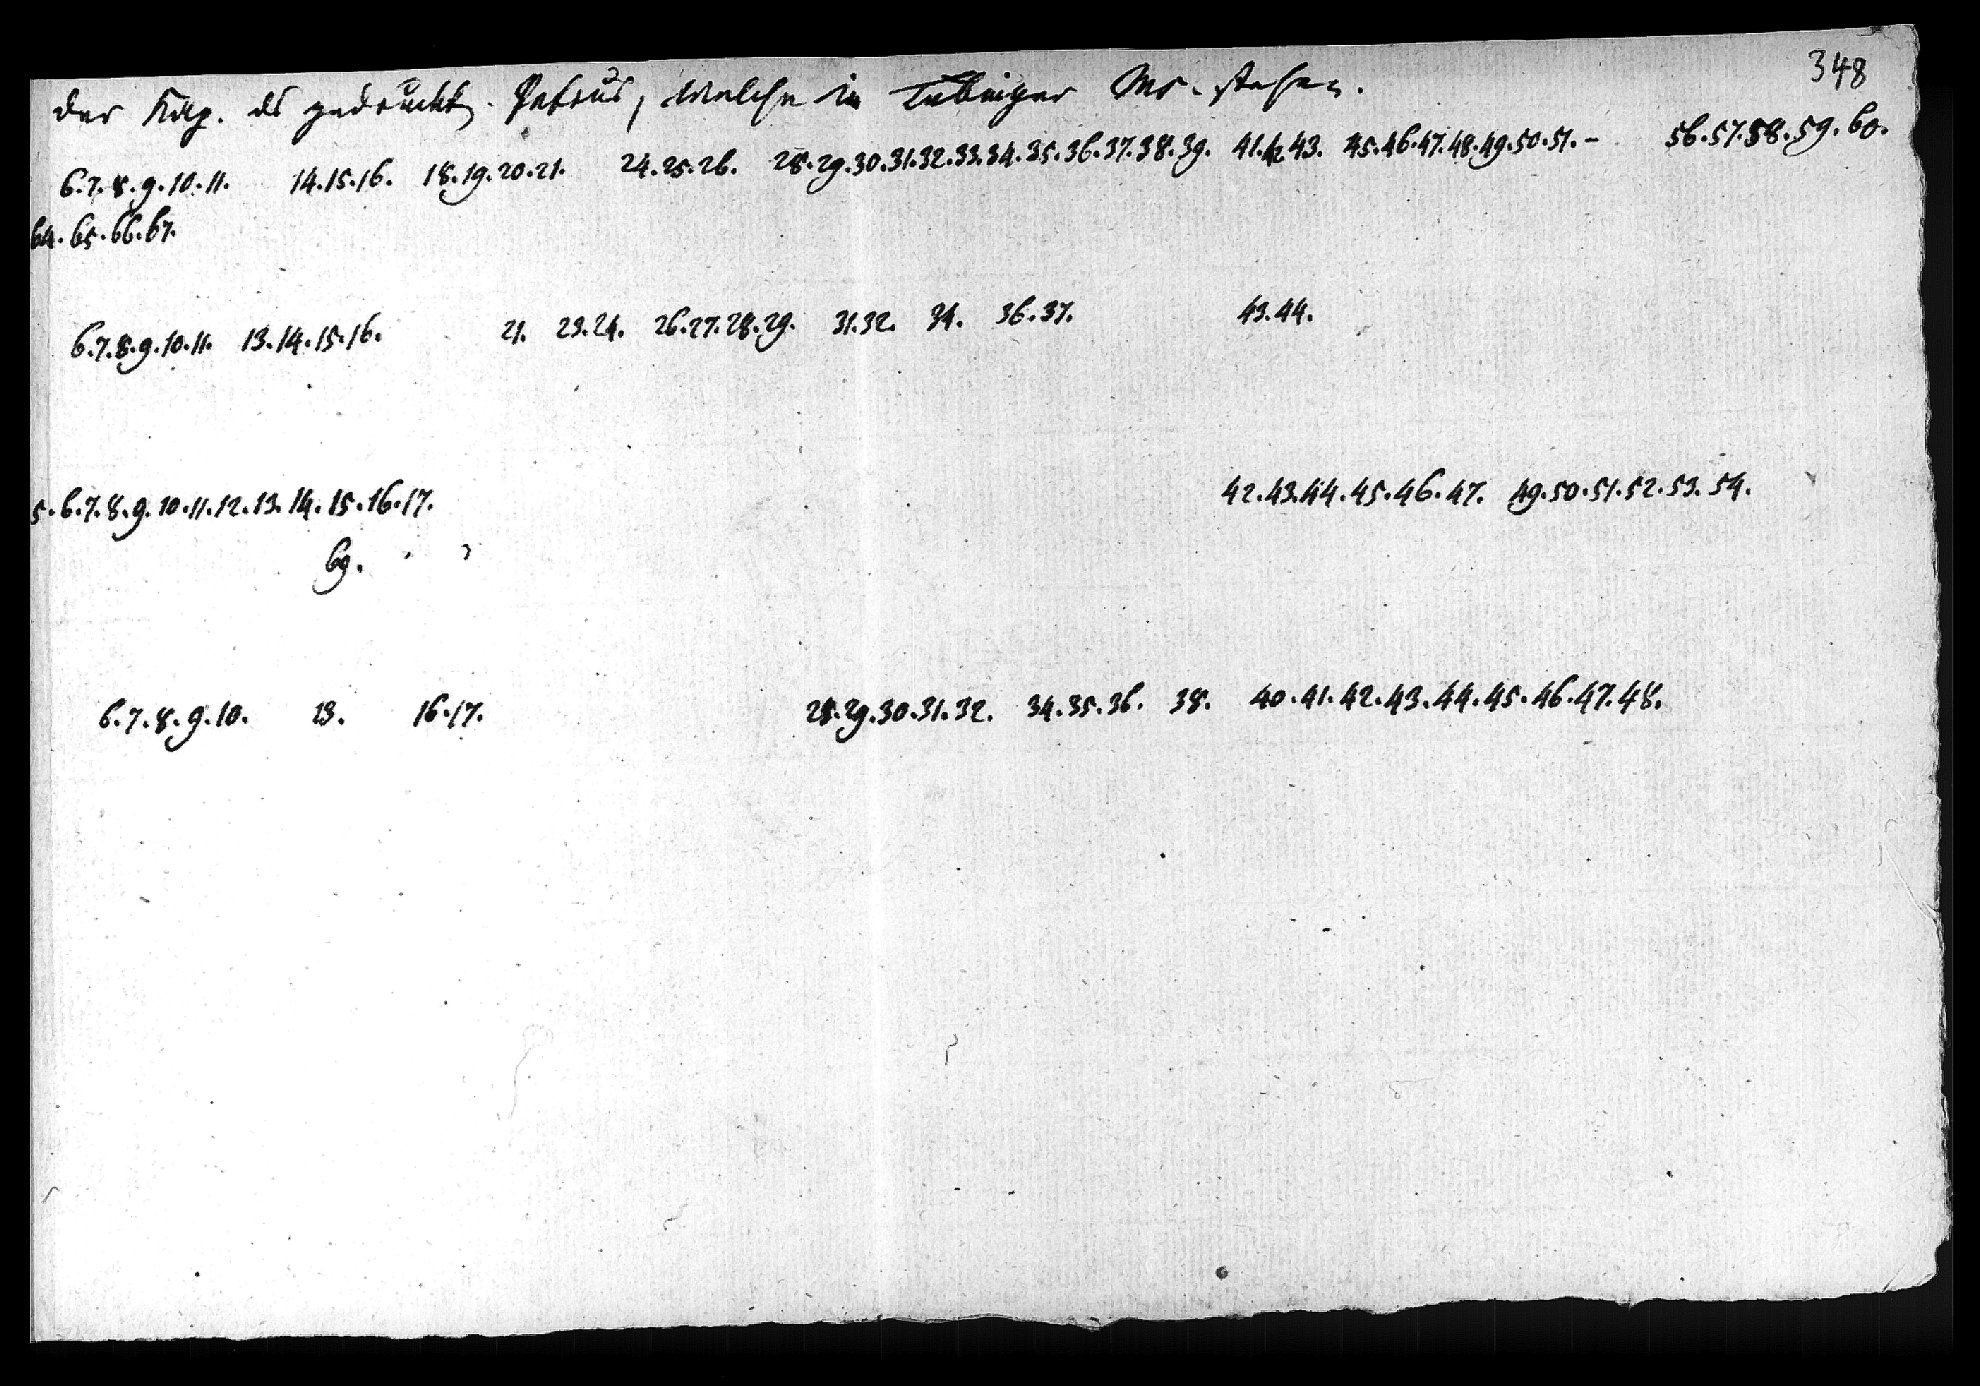 348
der Kap. ds gedruckt. Petrus, welche in Tübinger Ms. stehen.
6.7.8.9.10.11. 14.15.16. 18.19.20.21. 24.25.26. 28.29.30.31.32.33.34.35.36.37.38.39. 41.42.43. 45.46.47.48.49.50.51.- 56.57.58.59.60.
64.65.66.67.
6.7.8.9.10.11. 13.14.15.16. 21. 23.24. 26.27.28.29. 31.32. 34. 36.37. 43.44.
5.6.7.8.9.10.11.12.13.14.15.16.17. 42.43.44.45.46.47. 49.50.51.52.53.54.
69.
6.7.8.9.10. 13. 16.17. 28.29.30.31.32. 34.35.36. 38. 40.41.42.43.44.45.46.47.48.